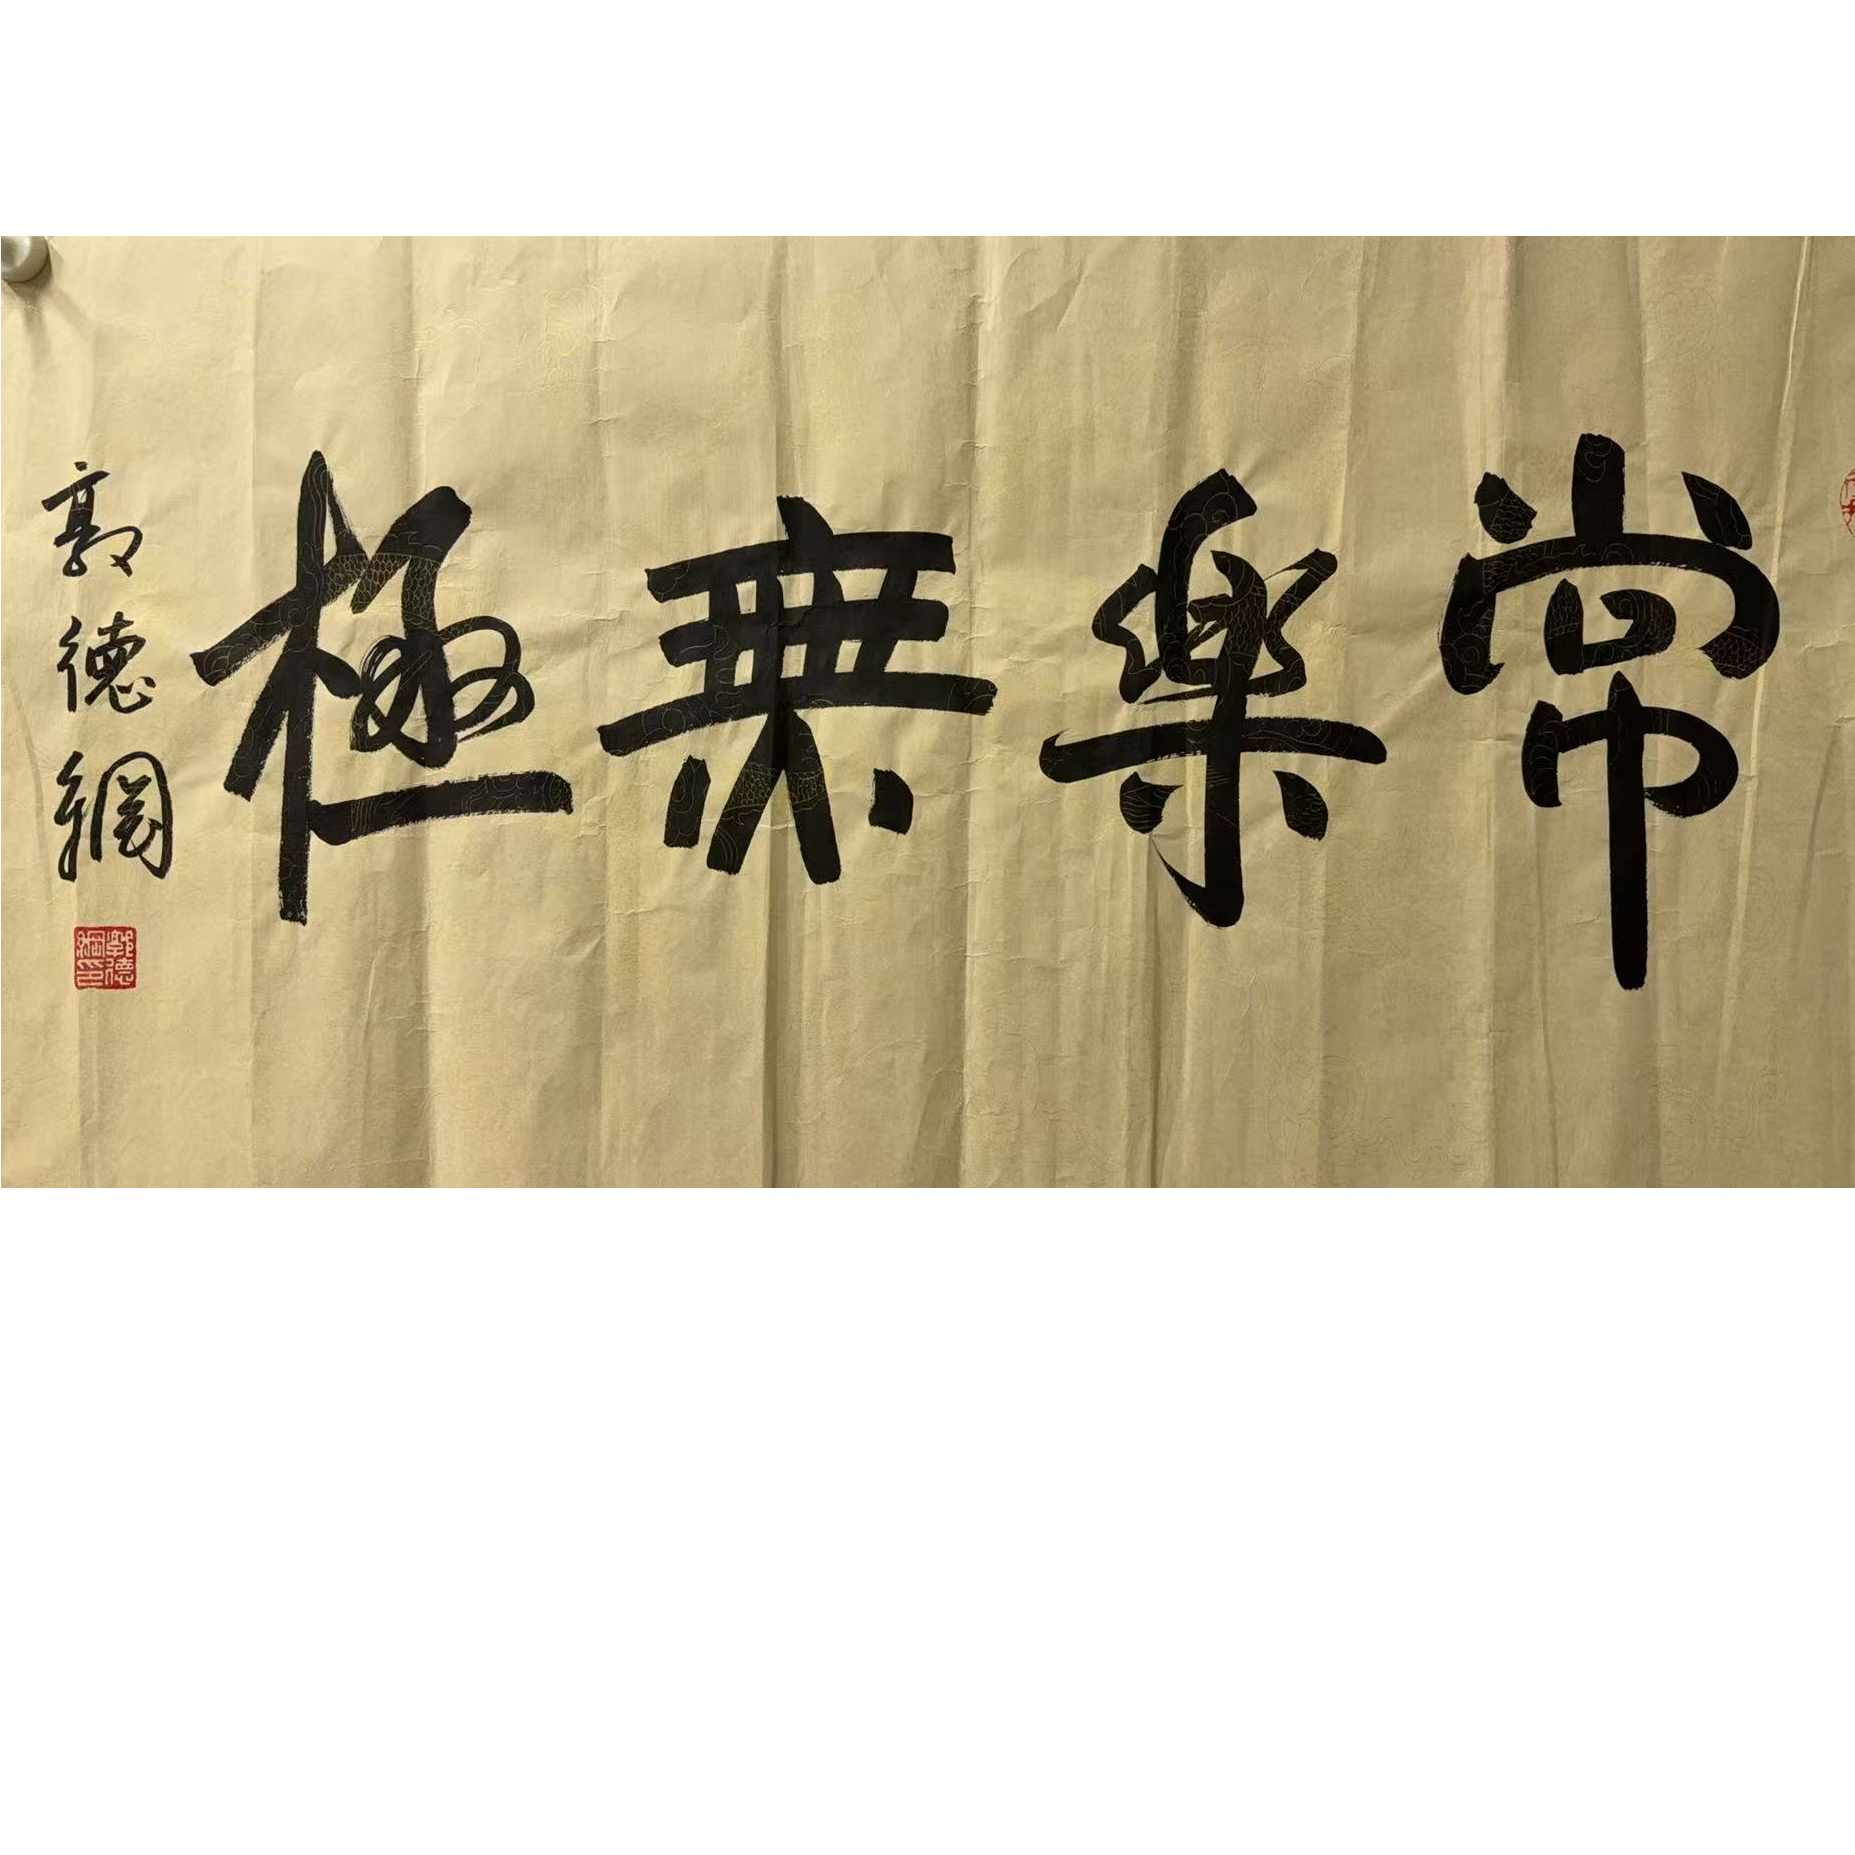 常樂無極
郭德綱
郭德綱印